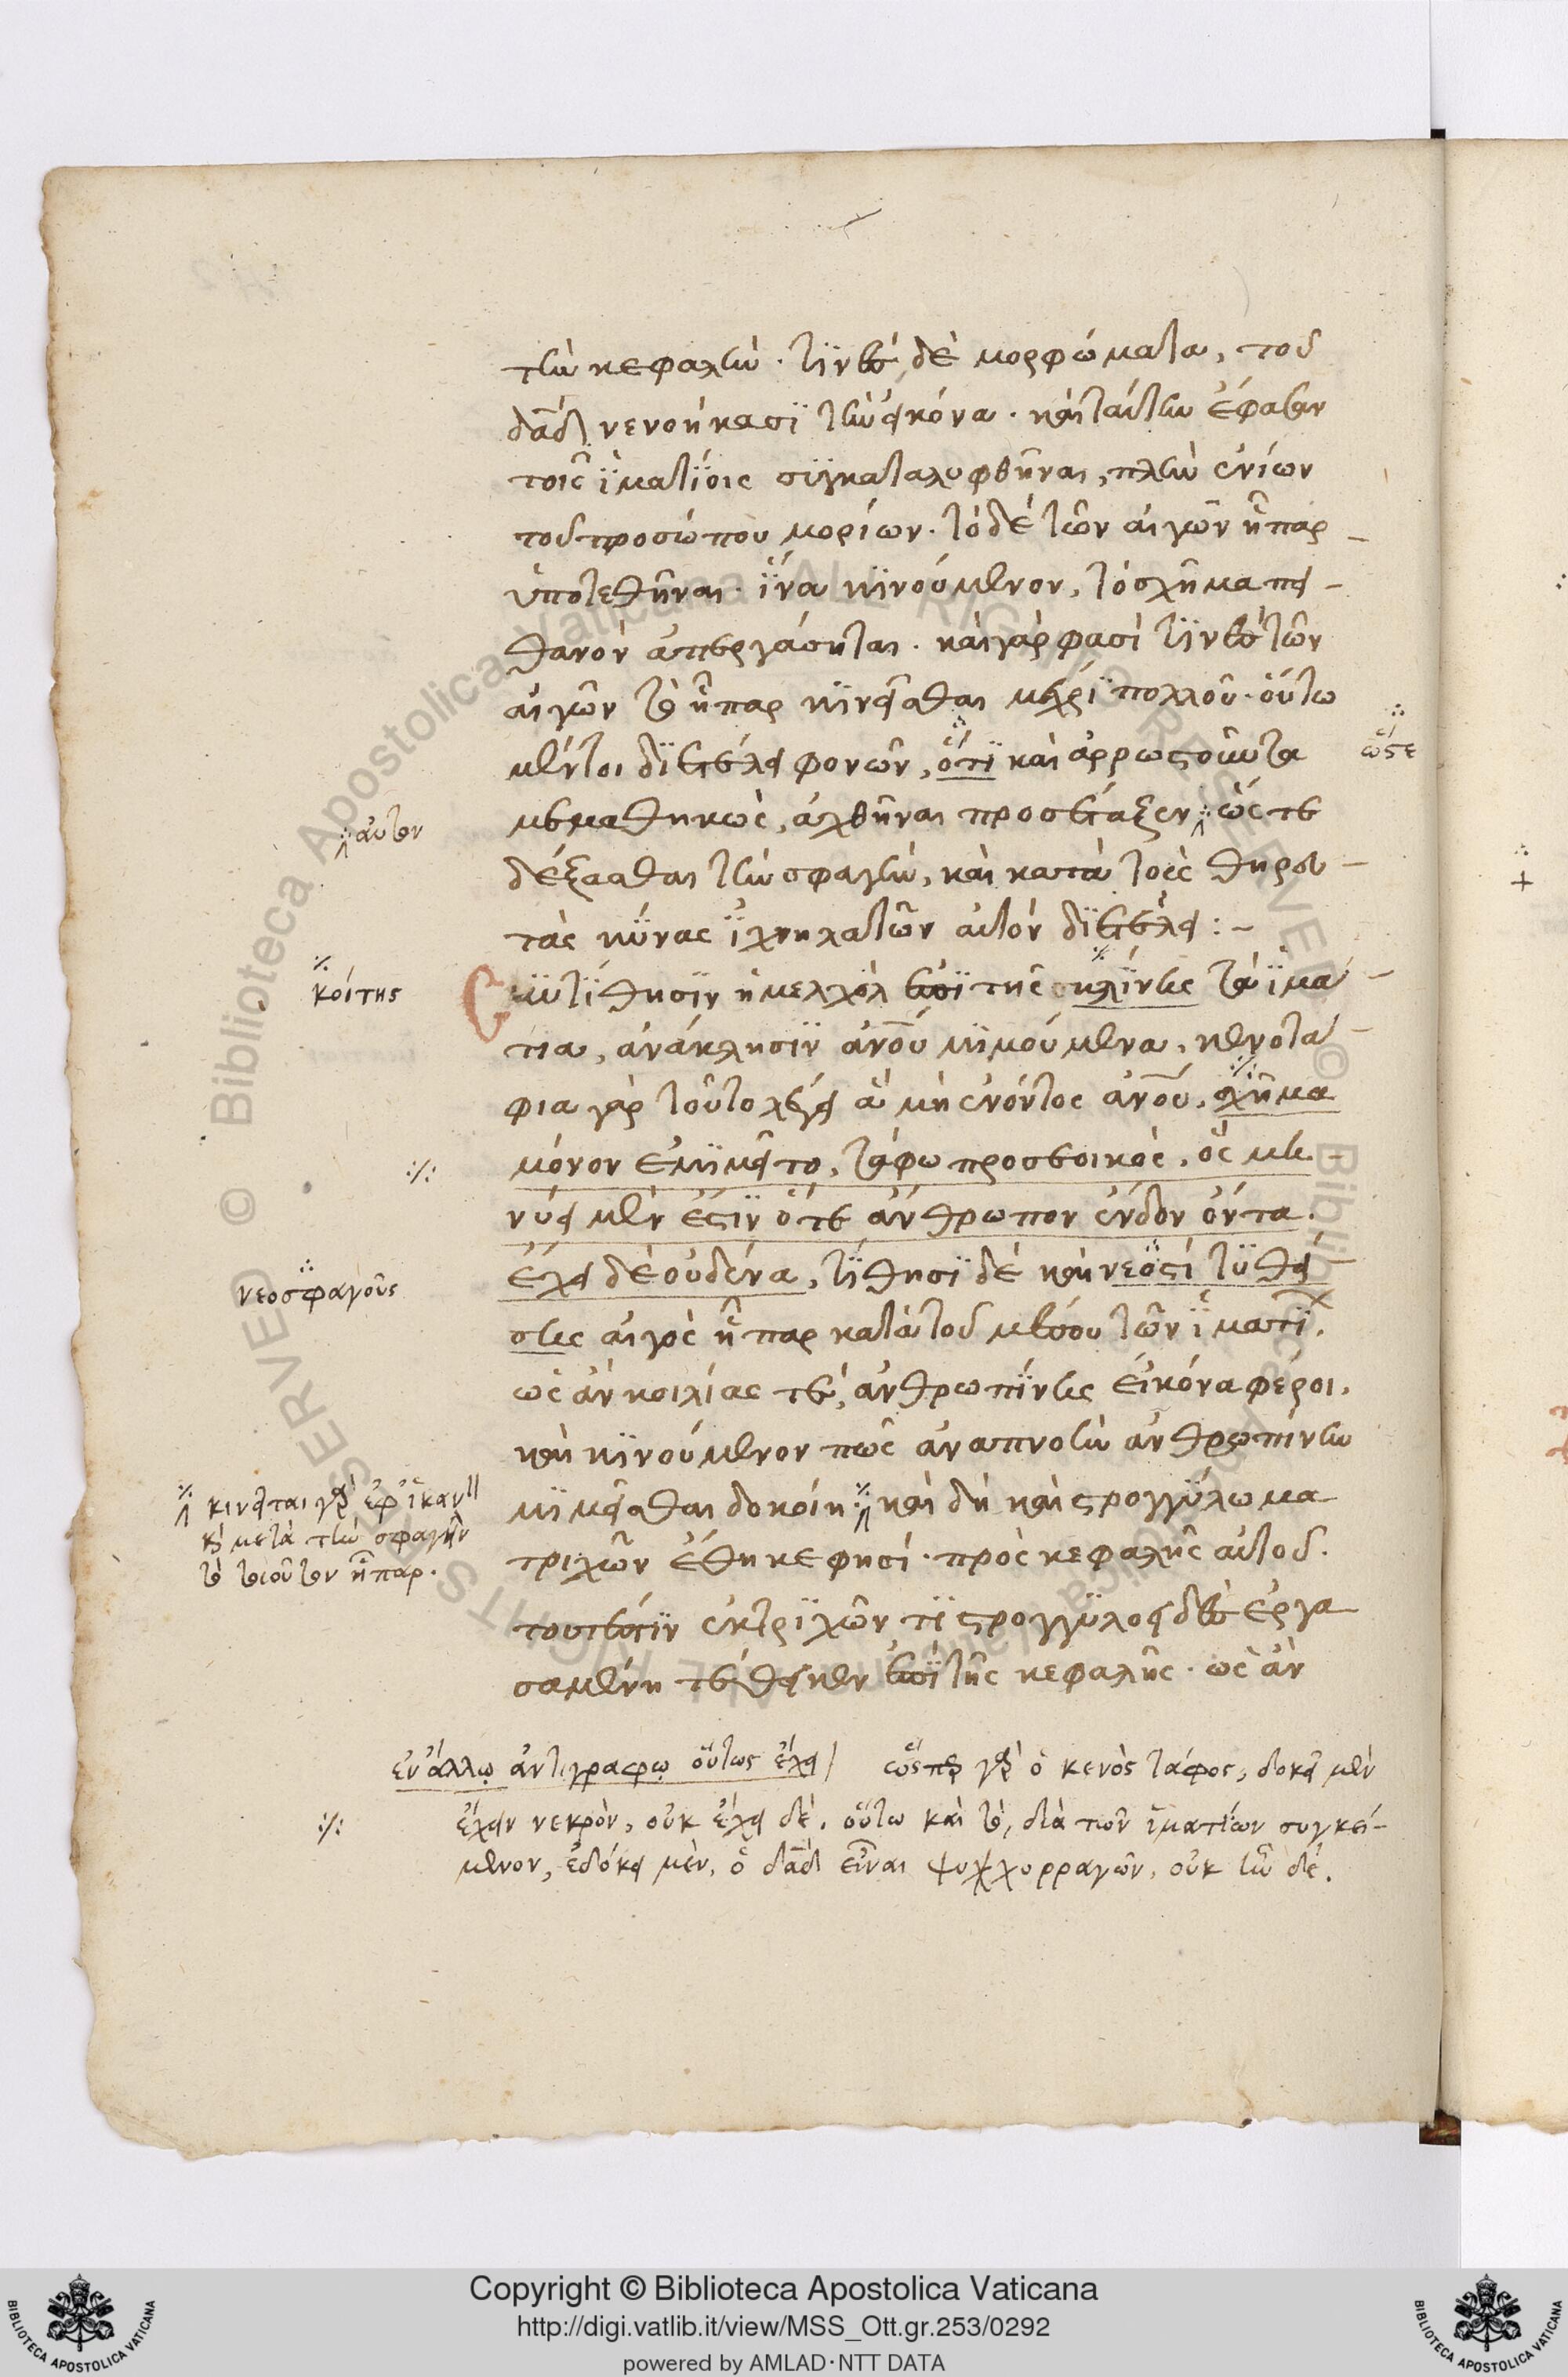 τὴν κεφαλὴν. τινὲς δὲ μορφώματα, τοῦ
δᾱδ νενοήκασι τὴν εἰκόνα. καὶ ταύτην ἔφασαν
τοῖς ἱματίοις συγκαταλυφθῆναι, πλὴν ἐνίων
τοῦ προσώπου μορίων. τὸ δὲ τῶν αἰγῶν ἧπαρ
ὑποτεθῆναι. ἵνα κινούμενον, τὸ σχῆμα πει-
θανὸν ἀπεργάσηται. καὶ γάρ φασί τινες τῶν
αἰγῶν τὸ ἧπαρ κινεῖσθαι μέχρι πολλοῦ. οὕτω
μέντοι διετέλει φονῶν, ὅτι καὶ ἀρρωστοῦντα
ὥστε
μεμαθηκὼς, ἀχθῆναι προσέταξεν ὥς τε
αὐτὸν
δέξασθαι τὴν σφαγὴν, καὶ κατὰ τοὺς θηρευ-
τὰς κύνας ἰχνηλατῶν αὐτὸν διετέλει:-
Ἐκτίθησιν ἡ μελχὸλ ἐπὶ τῆς κλίνης τὰ ἱμά-
κοίτης
τια, ἀνάκλησιν ἀνο̅υ μιμούμενα, κενοτά-
φια γὰρ τοῦτο λέγει ἃ μὴ ἐνόντος ἀνο̅υ, σχῆμα
μόνον ἐμιμεῖτο, τάφω προσεοικὸς, ὃς με-
νύει μὲν ἔστιν ὅτε ἄνθρωπον ἔνδον ὄντα.
ἔχει δὲ οὐδένα, τίθησι δὲ καὶ νεοστὶ τυθεί-
νεοσφαγοῦς
σης αἰγὸς ἧπαρ κατὰ τοῦ μέσου τῶν ἱματί.
ὡς ἂν κοιλίας τὲ, ἀνθρωπίνης εἰκόνα φέροι,
καὶ κινούμενον πῶς ἀναπνοὴν ἀνθρωπίνην
μιμεῖσθαι δοκοίη καὶ δὴ καὶ στρογγύλωμα
κινεῖται γὰρ ἐφ' ἱκαν
καὶ μετὰ τὴν σφαγὴν
τὸ τοιοῦτον ἧπαρ.
τριχῶν ἔθηκε φησί. πρὸς κεφαλῆς αὐτοῦ.
τουτέστιν ἐκ τριχῶν τι στρογγυλοειδὲς ἐργα
σαμένη τέθεικεν ἐπὶ τῆς κεφαλῆς. ὡς ἂν
ἐν ἄλλῳ ἀντιγράφῳ οὕτως ἔχει ὥσπερ γὰρ ὁ κενὸς τάφος, δοκεῖ μὲν
ἔχειν νεκρὸν, οὐκ ἔχει δὲ. οὕτω καὶ τὸ, διὰ τῶν ἱματίων συγκεί-
μενον, ἐδόκει μὲν, ὁ δᾱδ εἶναι ψυχορραγῶν, οὐκ ἦν δέ.
Copyright © Biblioteca Apostolica Vaticana
http://digi.vatlib.it/view/MSS_Ott.gr.253/0292
powered by AMLAD·NTT DATA